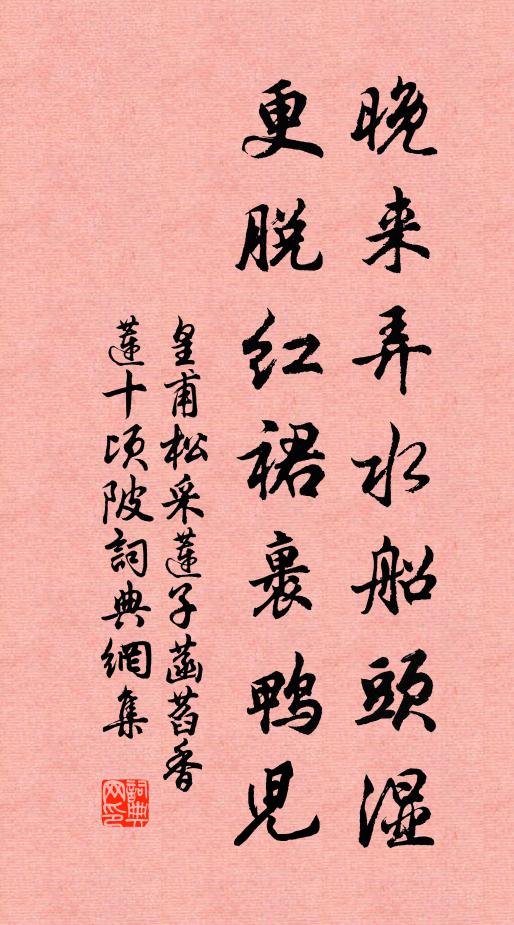 晚来弄水船頭湿
更脱红裙裹鴨児
皇甫松采蓮子菡萏香
蓮十顷陂詞典網集
詞典
网印